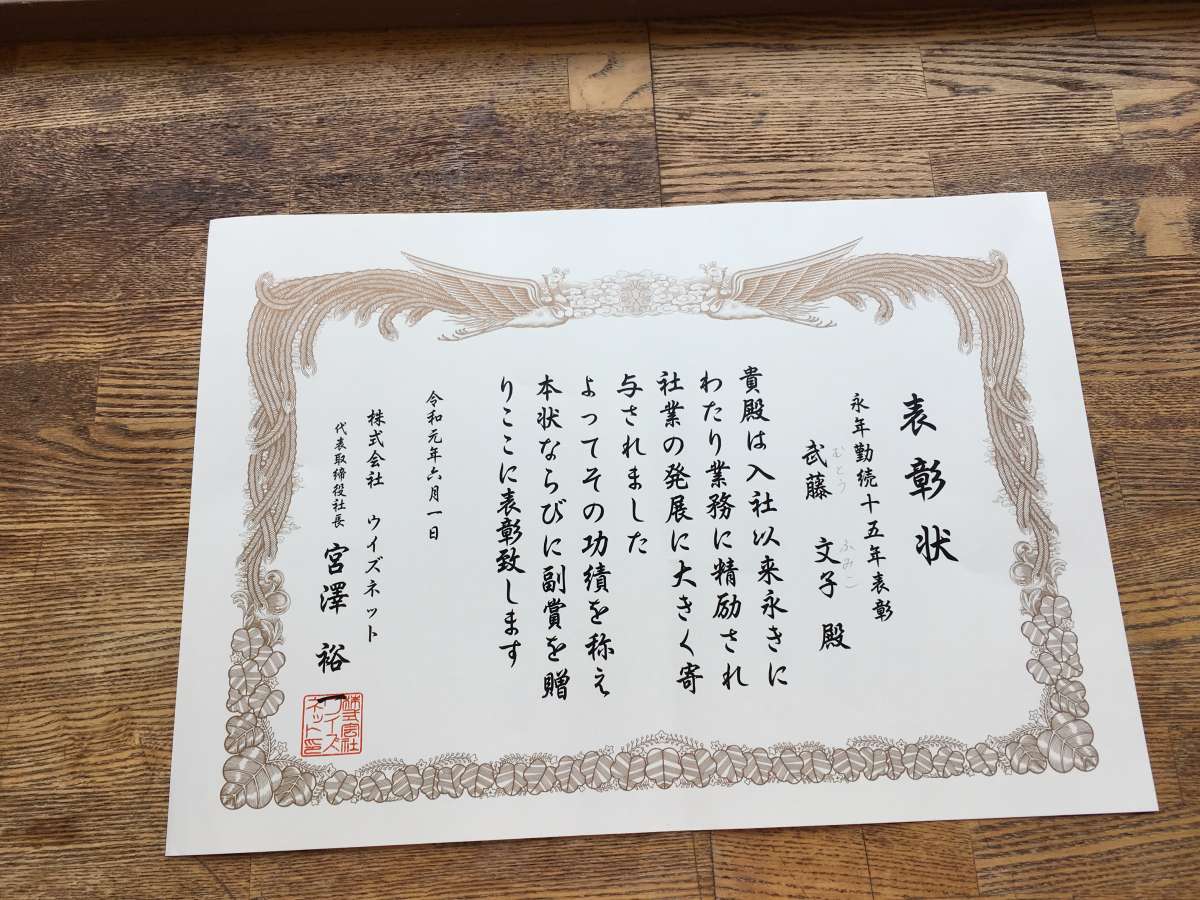 表彰状
永年勤続十五年表彰
むとう ふみこ
武藤 文子 殿
貴殿は入社以来永きに
わたり業務に精励され
社業の発展に大きく寄
与されました
よってその功績を称え
本状ならびに副賞を贈
りここに表彰致します
令和元年六月一日
株式会社 ウイズネット
代表取締役社長 宮澤 裕一
株式会社
ウイズ
ネット印